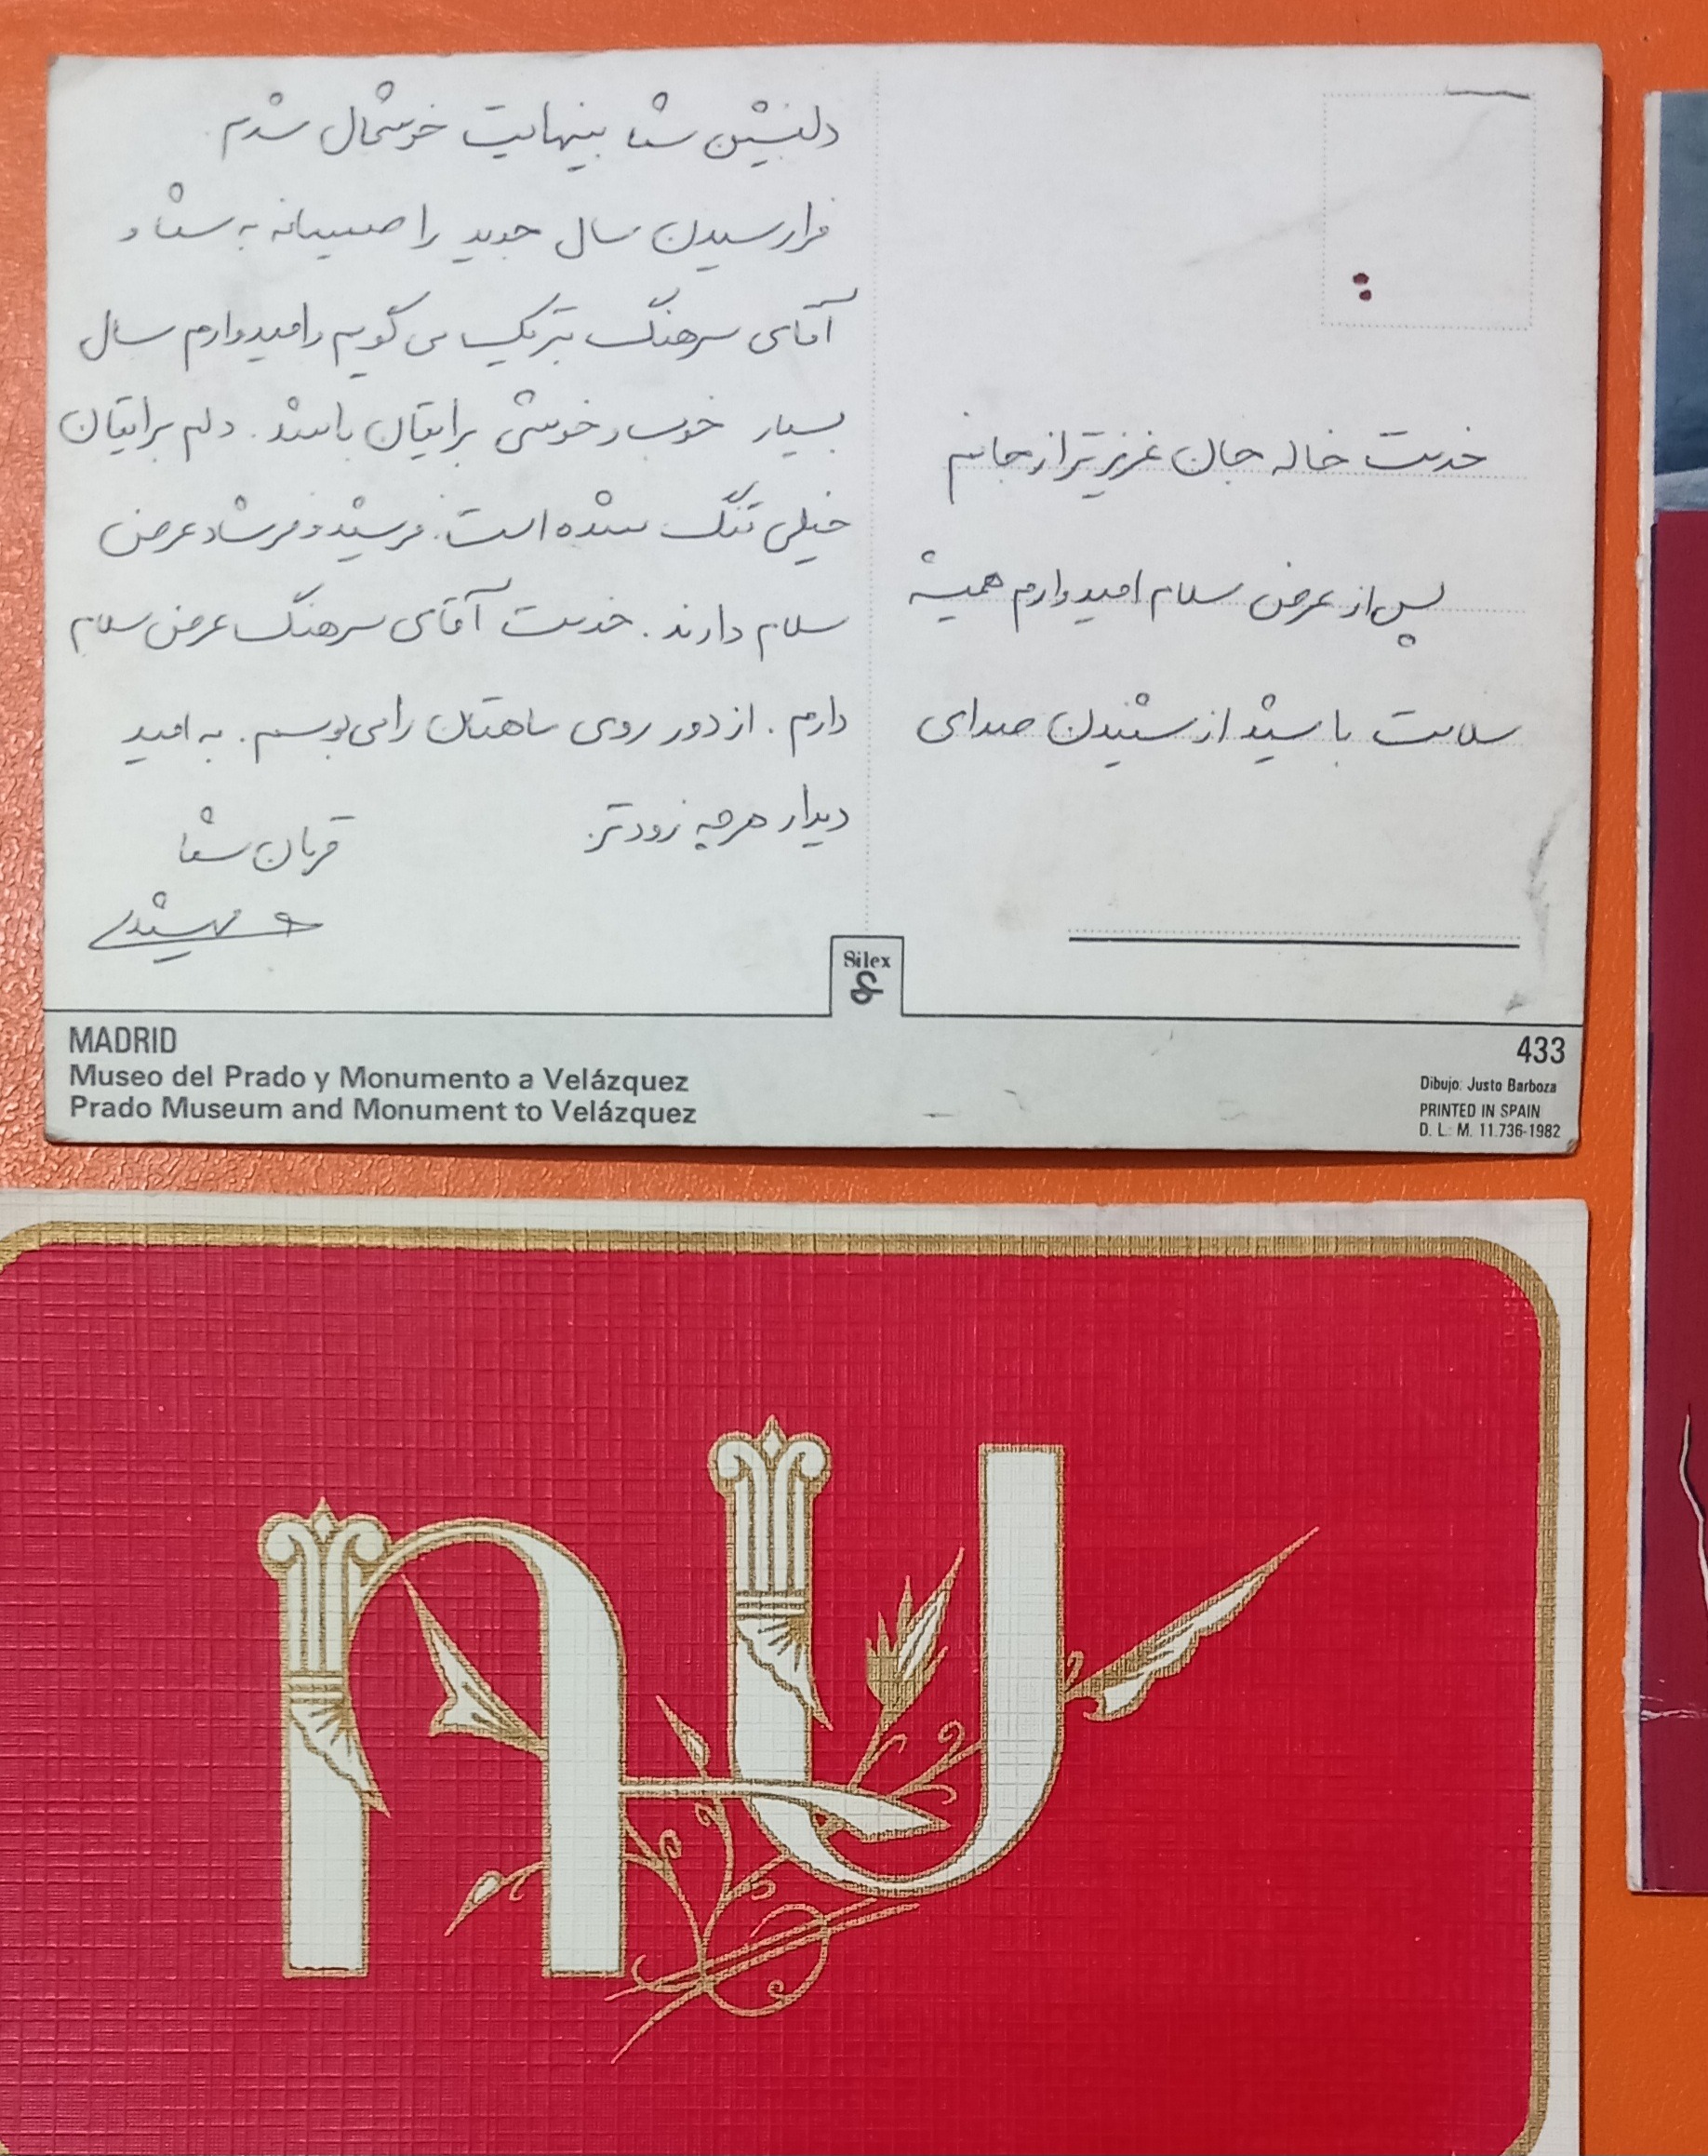 خدمت خاله جان عزیزتر از جانم
پس از عرض سلام امیدوارم همیشه
سلامت باشید از شنیدن صدای
دلنشین شما بینهایت خوشحال شدم
فرارسیدن سال جدید را صمیمانه به شما و
آقای سرهنگ تبریک می گویم و امیدوارم سال
بسیار خوب و خوشی برایتان باشد. دلم برایتان
خیلی تنگ شده است. فرشید و فرشاد عرض
سلام دارند. خدمت آقای سرهنگ عرض سلام
دارم. از دور روی ماهتان را می بوسم. به امید
دیدار هرچه زودتر.
قربان شما
Silex
MADRID
Museo del Prado y Monumento a Velázquez
Prado Museum and Monument to Velázquez
433
Dibujo: Justo Barboza
PRINTED IN SPAIN
D. L. M. 11.736-1982